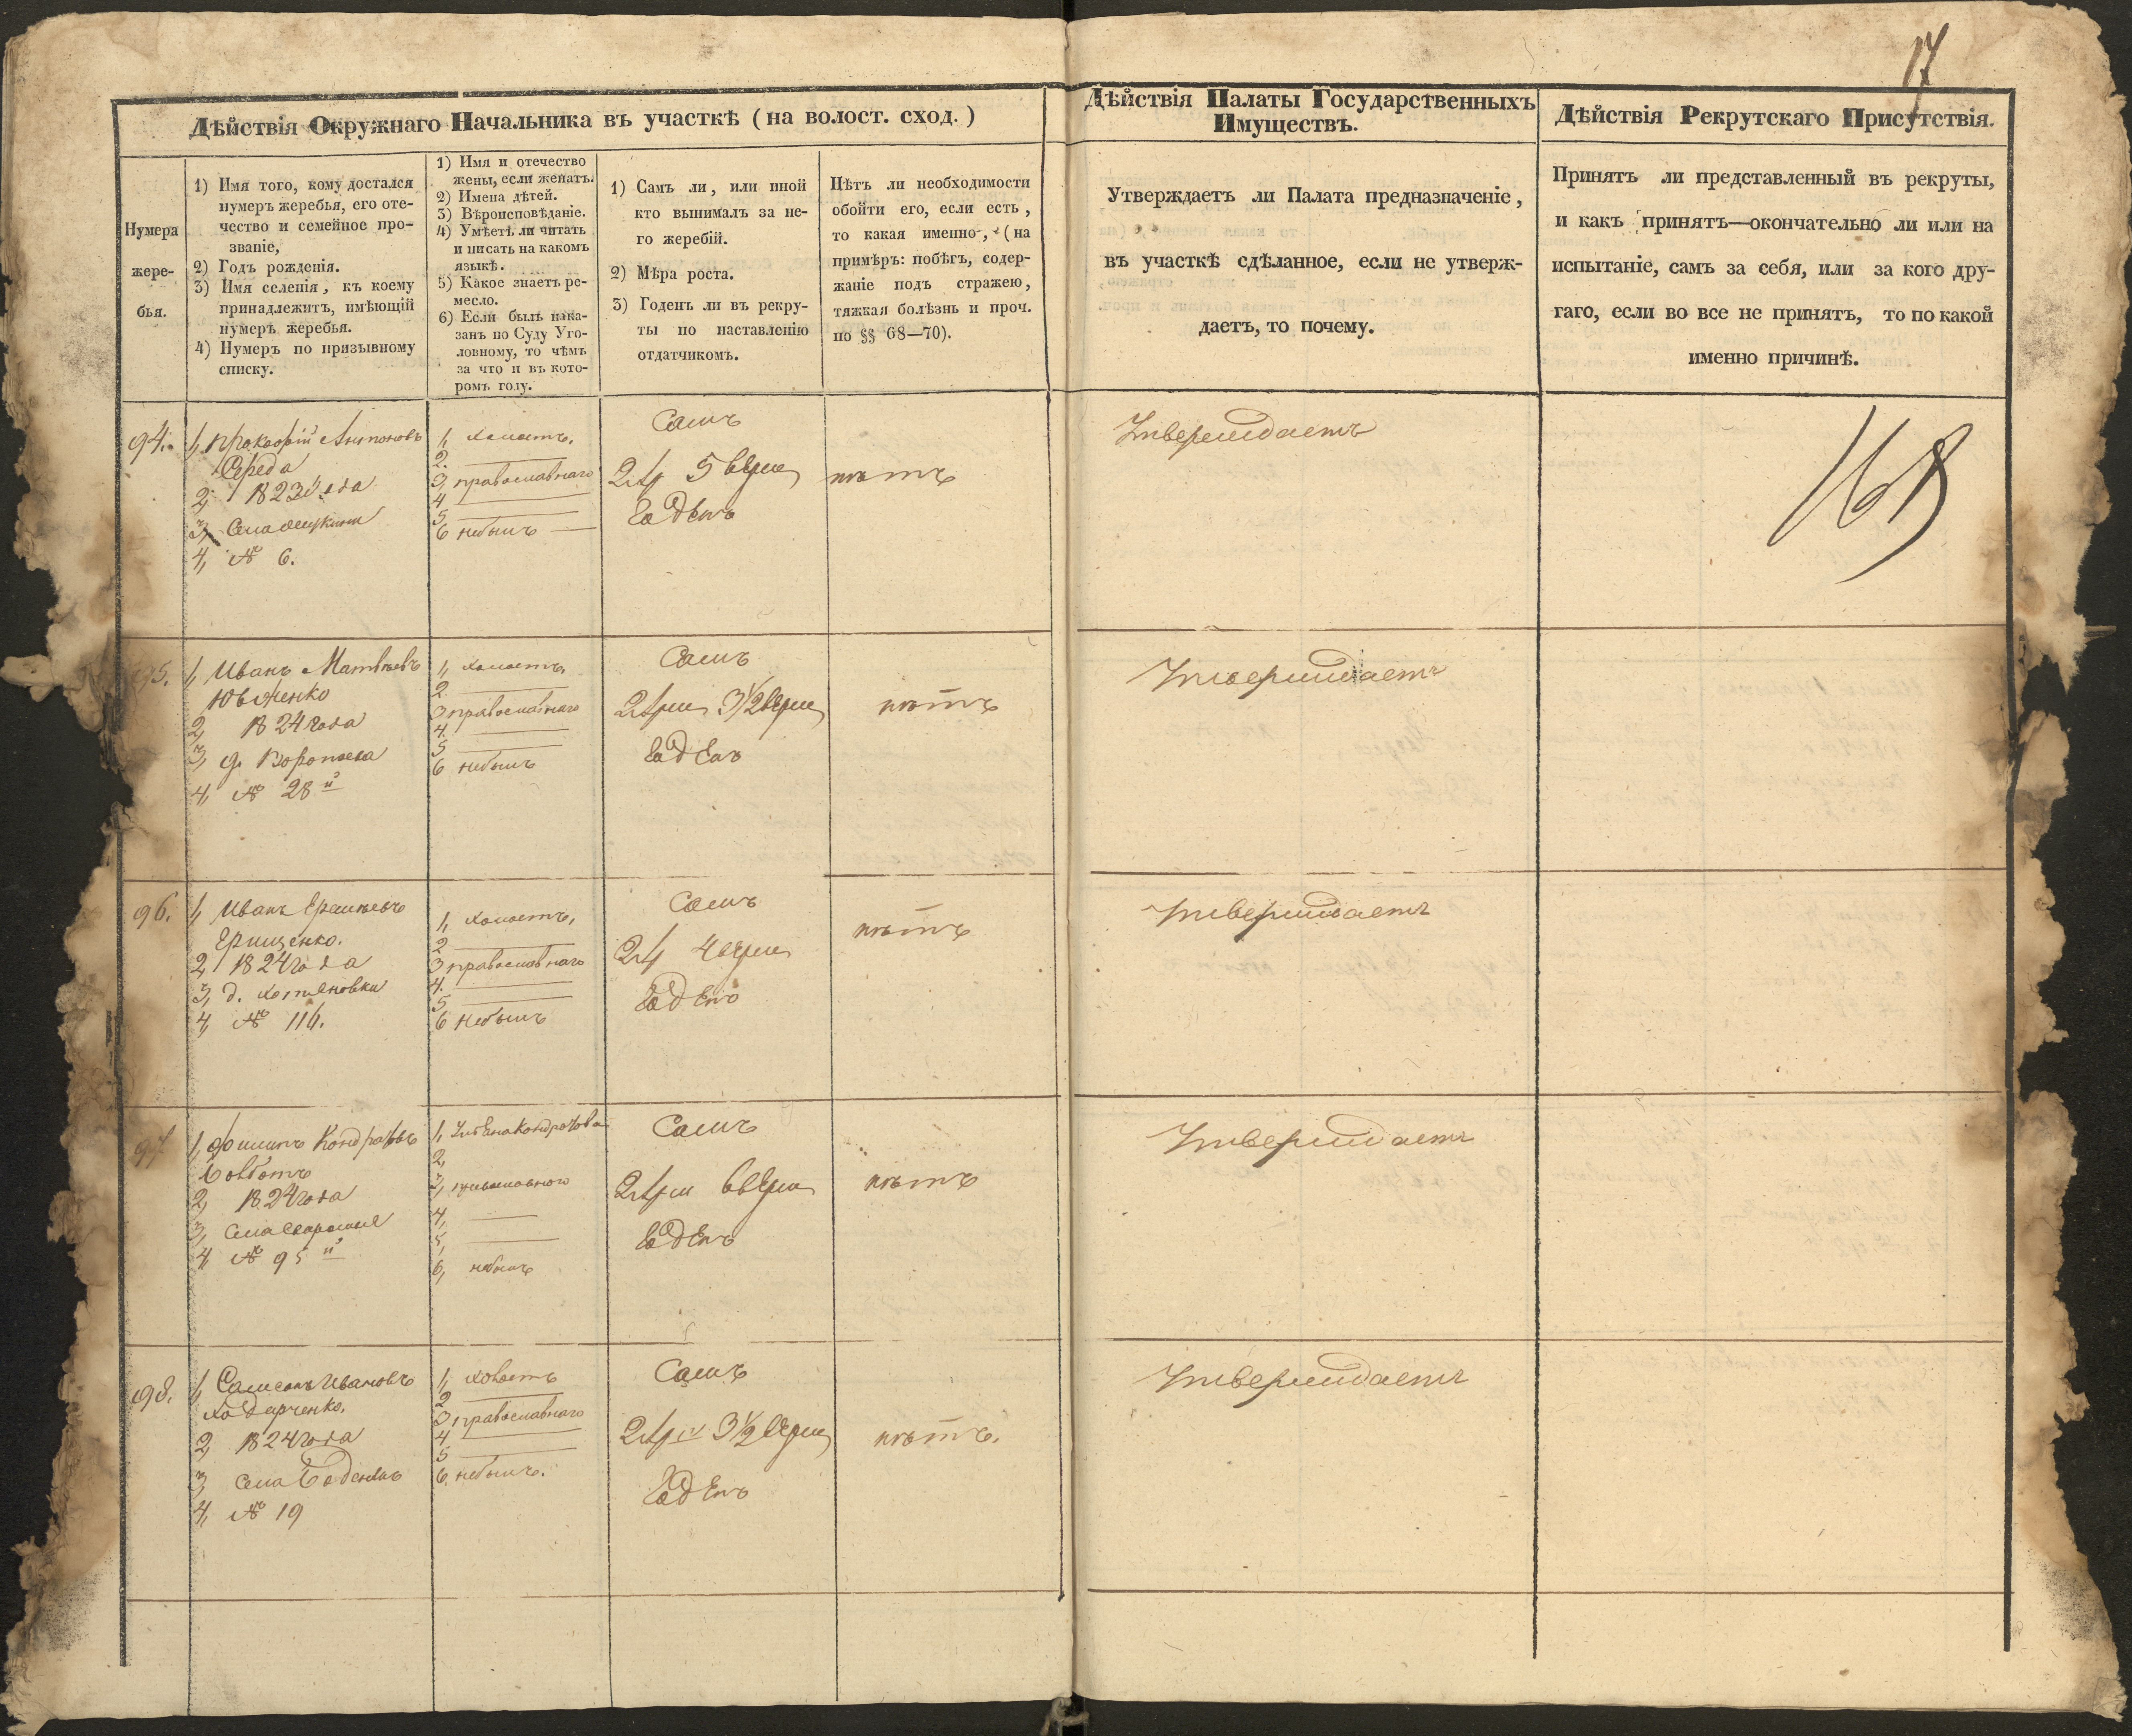 17
Дѣйствія Окружнаго Начальника въ участкѣ (на волост. сход.)
Дѣйствія Палаты Государственныхъ
Имуществъ.
Дѣйствія Рекрутскаго Присутствія.
Нумера
жере-
бья.
1) Имя того, кому достался
нумеръ жеребья, его оте-
чество и семейное про-
званіе,
2) Годъ рожденія.
3) Имя селенія, къ коему
принадлежитъ, имѣющій
нумеръ жеребья.
4) Нумеръ по призывному
списку.
1) Имя и отечество
жены, если женатъ.
2) Имена дѣтей.
3) Вѣроисповѣданіе.
4) Умѣетъ ли читать
и писать на какомъ
языкѣ.
5) Какое знаетъ ре-
месло.
6) Если былъ нака-
занъ по Суду Уго-
ловному, то чѣмъ
за что и въ кото-
ромъ году.
1) Самъ ли, или иной
кто вынималъ за не-
го жеребій.
2) Мѣра роста.
3) Годенъ ли въ рекру-
ты по наставленію
отдатчикомъ.
Нѣтъ ли необходимости
обойти его, если есть,
то какая именно, (на
примѣръ: побѣгъ, содер-
жаніе подъ стражею,
тяжкая болѣзнь и проч.
по §§ 68—70).
Утверждаетъ ли Палата предназначеніе,
въ участкѣ сдѣланное, если не утверж-
даетъ, то почему.
Принятъ ли представленный въ рекруты,
и какъ принятъ—окончательно ли или на
испытаніе, самъ за себя, или за кого дру-
гаго, если во все не принятъ, то по какой
именно причинѣ.
94.
1, Прокофій Антоновъ
Середа
2, 1823 года
3, Села
4, № 6.
1, холостъ,
2.
3, православнаго
4
5
6 небылъ
Самъ
2 ар 5 верш
Годенъ
нѣтъ
Утверждаетъ
95.
1, Иванъ Матвѣевъ
2, 1824 года
3, д.
4, № 28й
1, холостъ,
2
3 православнаго
4.
5
6 небылъ
Самъ
2 арш 3 1/2 верш
Годенъ
нѣтъ
Утверждаетъ
96.
1, Иванъ
Грищенко.
2, 1824 года
3, д.
4, № 116.
1, холостъ,
2
3 православнаго
4.
5
6 небылъ
Самъ
2 ар 4 верш
Годенъ
нѣтъ
Утверждаетъ
97.
1, Филипъ Кондратовъ
2, 1824 года
3, Села
4, № 95й
1, Кондратова
2,
3, православного
4,
5,
6, небылъ
Самъ
2 арш 6 верш
Годенъ
нѣтъ
Утверждаетъ
98.
1, Самсонъ Ивановъ
Ходарченко.
2, 1824 года
3 Села
4, № 19
1, холостъ
2
3 православнаго
4
5
6, небылъ.
Самъ
2 арш 3 1/2 верш
Годенъ
нѣтъ.
Утверждаетъ